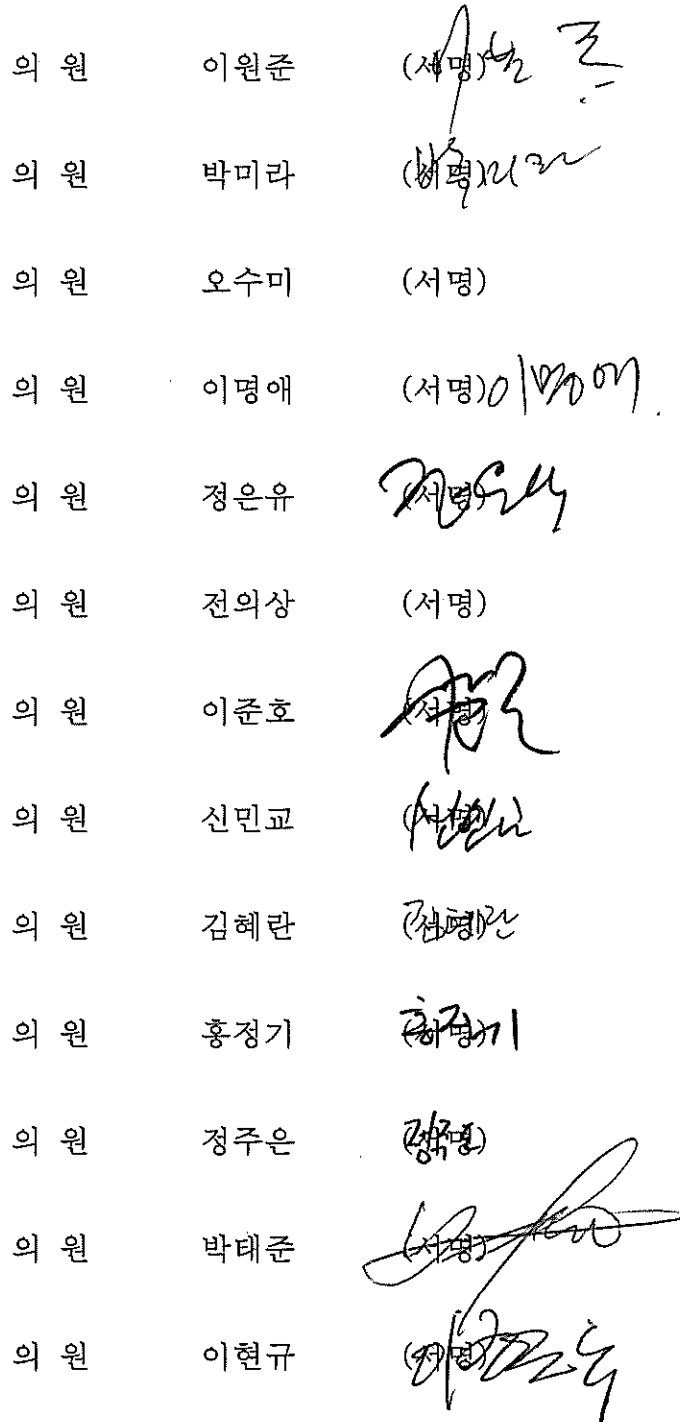 의 원 이원준 (서명)
의 원 박미라 (서명)
의 원 오수미 (서명)
의 원 이명애 (서명) 이명애
의 원 정은유 (서명)
의 원 전의상 (서명)
의 원 이준호 (서명)
의 원 신민교 (서명)
의 원 김혜란 (서명) 김혜란
의 원 홍정기 (서명) 홍정기
의 원 정주은 (서명) 정주은
의 원 박태준 (서명)
의 원 이현규 (서명)